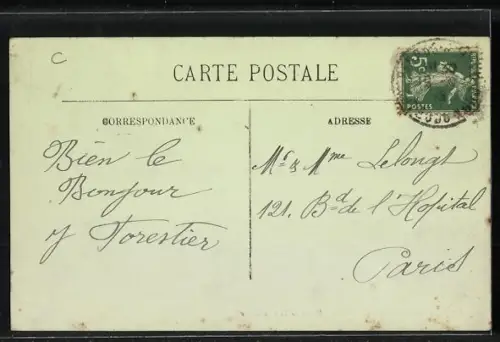 C
CARTE POSTALE
CORRESPONDANCE
ADRESSE
5c
POSTES
Bien le
Bonjour
Forestier
Mr & Mme Lelongt
121. Bd de l'Hopital
Paris